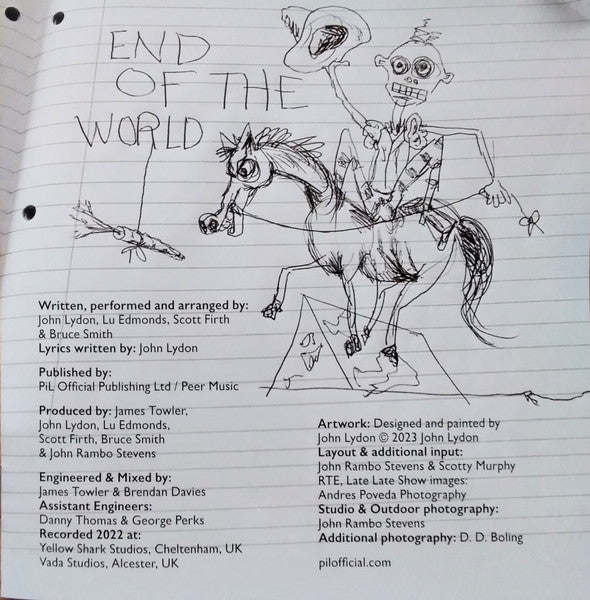 END
OF THE
WORLD
Written, performed and arranged by:
John Lydon, Lu Edmonds, Scott Firth
& Bruce Smith
Lyrics written by: John Lydon
Published by:
PiL Official Publishing Ltd / Peer Music
Produced by: James Towler,
John Lydon, Lu Edmonds,
Scott Firth, Bruce Smith
& John Rambo Stevens
Engineered & Mixed by:
James Towler & Brendan Davies
Assistant Engineers:
Danny Thomas & George Perks
Recorded 2022 at:
Yellow Shark Studios, Cheltenham, UK
Vada Studios, Alcester, UK
Artwork: Designed and painted by
John Lydon © 2023 John Lydon
Layout & additional input:
John Rambo Stevens & Scotty Murphy
RTE, Late Late Show images:
Andres Poveda Photography
Studio & Outdoor photography:
John Rambo Stevens
Additional photography: D. D. Boling
pilofficial.com